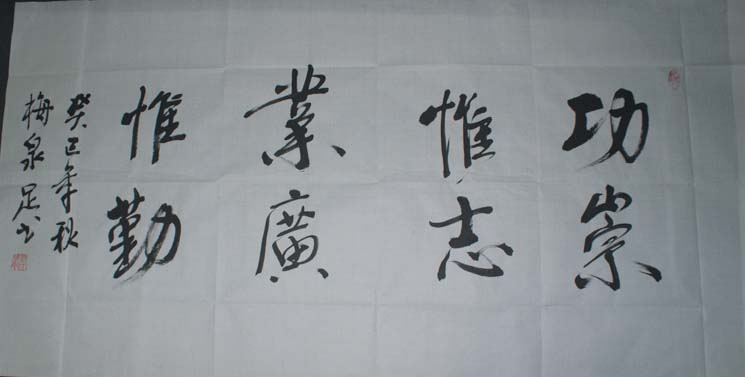 功崇
惟志
業廣
惟勤
癸巳年秋
梅泉足书